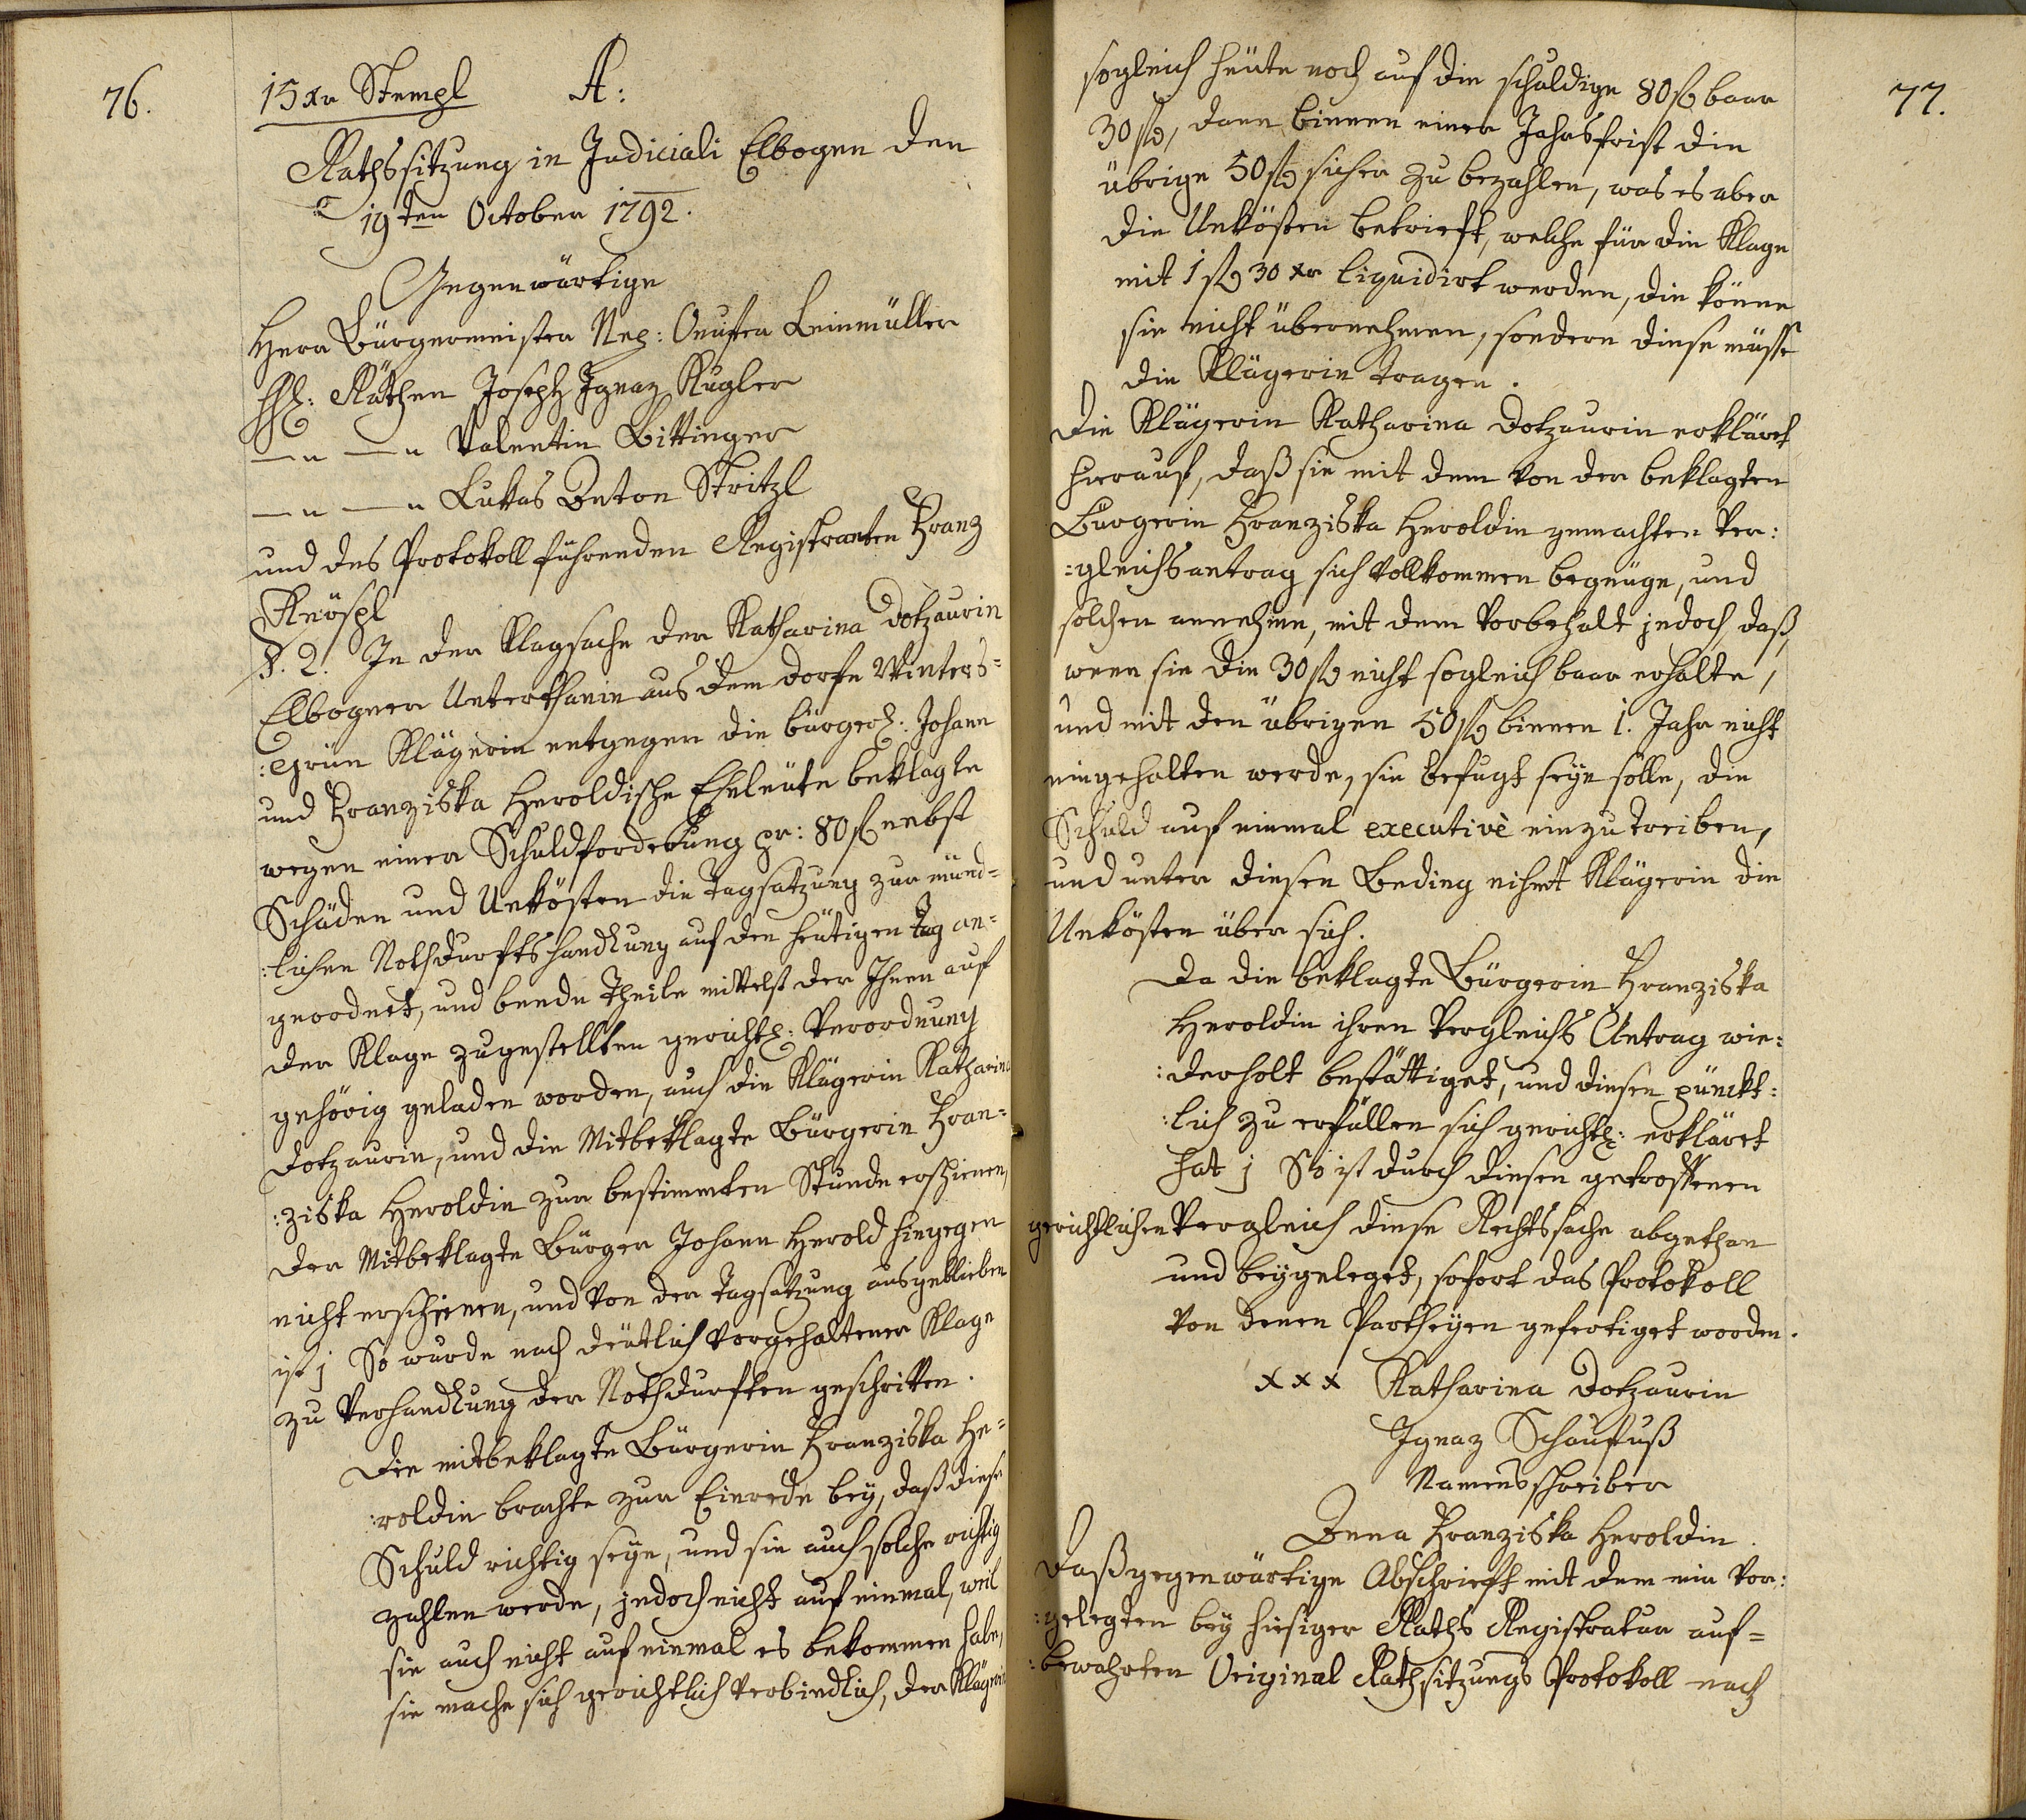 76.
15 xr Stempl A:
Rathssitzung in Judiciali Elbogen den
19ten October 1792.
Gegenwärtige
Herr Bürgermeister Nep: Leinmüller
HH: Räthen Joseph Ignaz Kugler
—"— —"— Valentin Bittinger
—"— —"— Lukas Anton Stritzl
und des Protokoll führenden Registranten Franz
Knöspl
§. 2. In der Klagsache der Katharina Dotzaurin
Elbogner Unterthanin aus dem Dorfe Winters=
:Grün Klägerin entgegen die bürgerl: Johann
und Franziska Heroldische Eheleüte beklagte
wegen einer Schuldforderung pr: 80 fl nebst
Schäden und Unkösten die Tagsatzung zur münd=
:lichen Nothdurftshandlung auf den heütigen Tag an=
geordnet, und beede Theile mittelst der Ihnen auf
der Klage zugestellten gerichtl: Verordnung
gehörig geladen worden, auch die Klägerin Katharina
Dotzaurin, und die Mitbeklagte Bürgerin Fran=
:ziska Heroldin zur bestimmten Stunde erschienen,
der Mitbeklagte Bürger Johann Herold hingegen
nicht erschienen, und von der Tagsatzung ausgeblieben
ist; So wurde nach deütlich vorgehaltener Klage
zu Verhandlung der Nothdurften geschritten.
Die mitbeklagte Bürgerin Franziska He=
:roldin brachte zur Einrede bey, daß diese
Schuld richtig seye, und sie auch solche richtig
zahlen werde, jedoch nicht auf einmal, weil
sie auch nicht auf einmal es bekommen habe,
sie mache sich gerichtlich verbindlich, der Klägerin
77.
sogleich heüte noch auf die schuldige 80 fl baar
30 fl, dann binnen einer Jahrsfrist die
übrige 50 fl sicher zu bezahlen, was es aber
die Unkösten betrieft, welche für die Klage
mit 1 fl 30 xr liquidirt werden, die könne
sie nicht übernehmen, sondern diese müsse
die Klägerin tragen.
Die Klägerin Katharina Dotzaurin erklärt
hierauf, daß sie mit dem von der beklagten
Bürgerin Franziska Heroldin gemachten Ver:
:gleichsantrag sich vollkommen begnüge, und
solchen annehme, mit dem Vorbehalt jedoch, daß,
wenn sie die 30 fl nicht sogleich baar erhalte,
und mit den übrigen 50 fl binnen 1. Jahr nicht
eingehalten werde, sie befugt seyn solle, die
Schuld auf einmal executivè einzutreiben,
und unter diesen Beding nihmt Klägerin die
Unkösten über sich.
Da die beklagte Bürgerin Franziska
Heroldin ihren Vergleichs Antrag wie:
:derholt bestättiget, und diesen pünckt:
:lich zu erfüllen sich gerichtl: erklärt
hat; So ist durch diesen getroffenen
gerichtlichen Vergleich diese Rechtssache abgethan
und beygeleget, sofort das Protokoll
von denen Partheyen gefertiget worden.
xxx Katharina Dotzaurin
Ignaz Schaufuß
Namensschreiber
Anna Franziska Heroldin.
Daß gegenwärtige Abschrieft mit dem mir vor:
:gelegten bey hiesiger Raths Registratur auf=
:bewahrten Original Rathsitzungs Protokoll nach